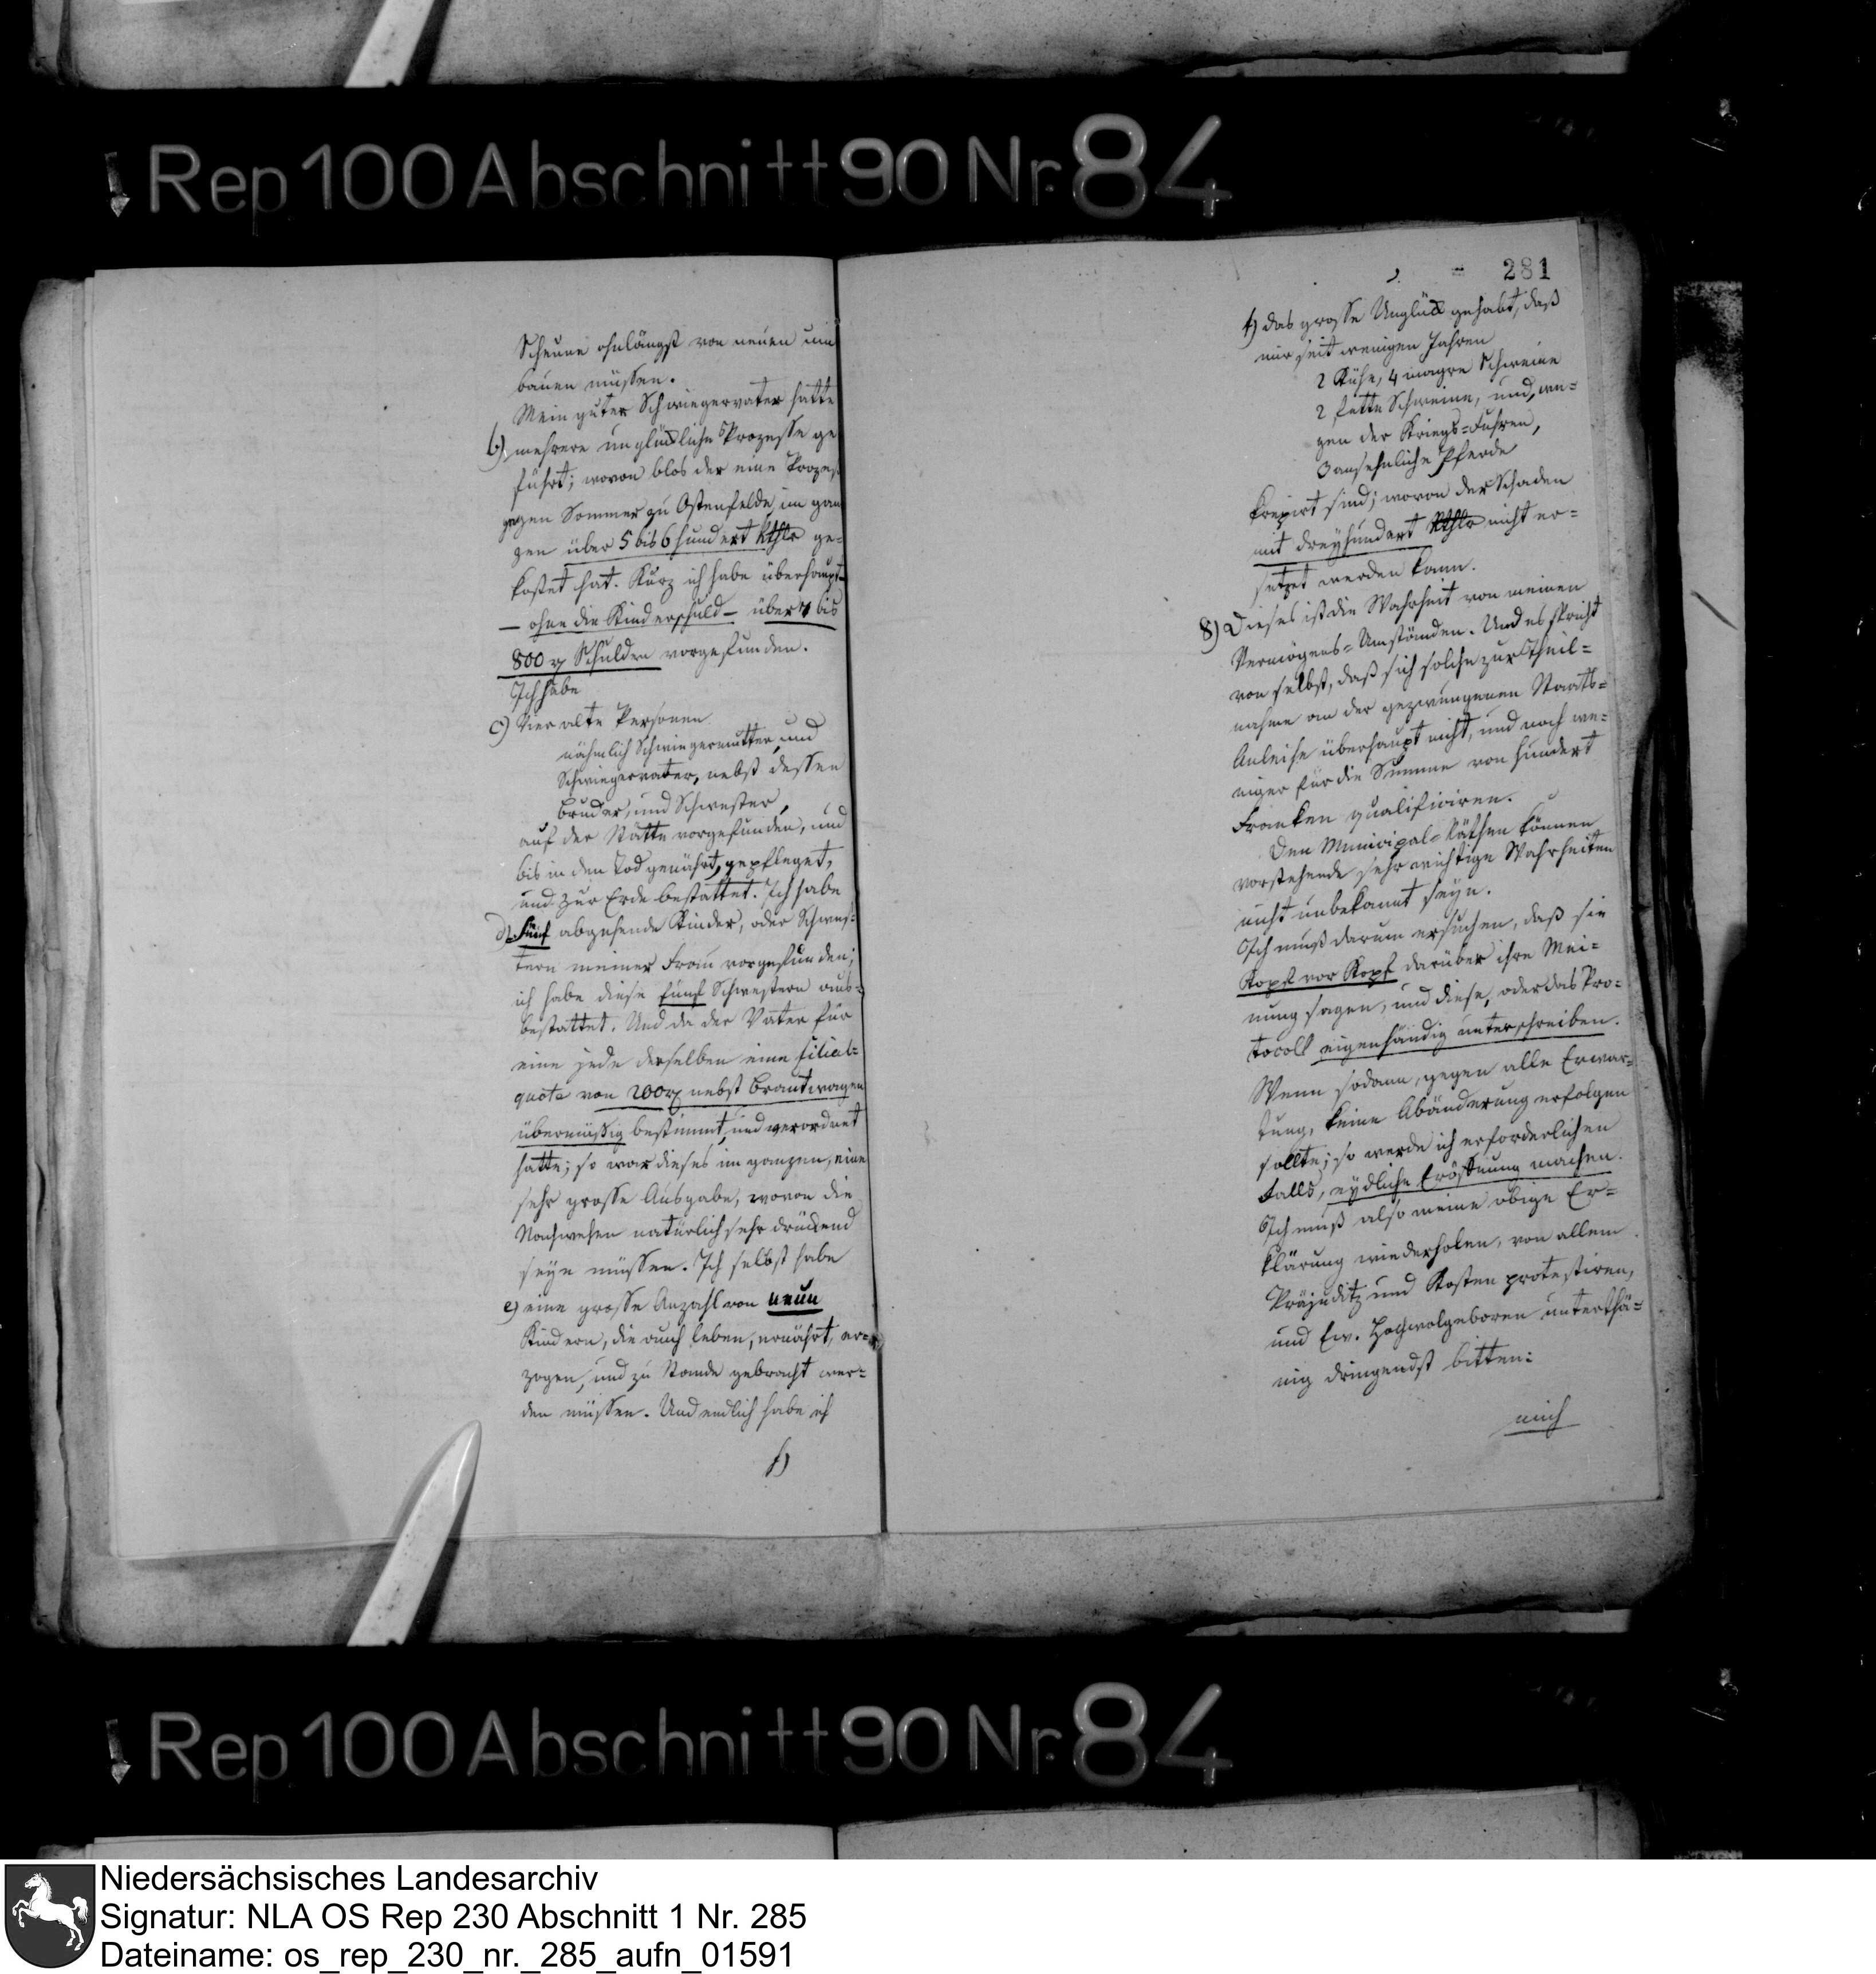 Rep 100 Abschnitt 90 Nr. 84
Scheune ohnlängst von neuen um
bauen müssen.
Mein guter Schwiegervater hatte
b) mehrere unglückliche Prozesse ge
führt; wovon blos der eine Prozeß
gegen Sommer zu Ostenfelde im gan
zen über 5 bis 6 hundert Rthlr ge-
kostet hat. Kurz ich habe überhaupt
— ohne die Kinderschuld — über 7 bis
800 rt Schulden vorgefunden.
Ich habe
c) Vier alte Personen
nähmlich Schwiegermutter und
Schwiegervater, nebst dessen
Bruder, und Schwester,
auf der Stätte vorgefunden, und
bis in den Tod genährt, gepfleget,
und zur Erde bestattet. Ich habe
d) Fünf abgehende Kinder, oder Schwes-
tern meiner Frau vorgefunden;
ich habe diese fünf Schwestern aus-
bestattet. Und da der Vater für
eine jede derselben eine filial-
quote von 200 rt nebst Brautwagen
übermäßig bestimmt, und verordnet
hatte; so war dieses im ganzen, eine
sehr grosse Ausgabe, wovon die
Nachwehen natürlich sehr drückend
seyn müssen. Ich selbst habe
e) eine grosse Anzahl von neun
Kindern, die auch leben, ernährt, er-
zogen, und zu Stande gebracht wer-
den müssen. Und endlich habe ich
f)
281
f) das grosse Unglück gehabt, daß
mir seit wenigen Jahren
2 Kühe, 4 magre Schweine
2 fette Schweine, und, we-
gen der Kriegs-Fuhren,
3 ansehnliche Pferde
krepirt sind; wovon der Schaden
mit dreyhundert Rthlr nicht er-
setzet werden kann.
8) Dieses ist die Wahrheit von meinen
Vermögens-Umständen. Und es spricht
von selbst, daß sich solche zur Theil-
nahme an der gezwungenen Staats-
Anleihe überhaupt nicht, und noch we-
niger für die Summe von hundert
Franken qualificiren.
Den Municipal-Räthen können
vorstehende sehr wichtige Wahrheiten
nicht unbekannt seyn.
Ich muß darum ersuchen, daß sie
Kopf vor Kopf darüber ihre Mei-
nung sagen, und diese, oder das Pro-
tocoll eigenhändig unterschreiben.
Wenn sodann, gegen alle Erwar-
tung, keine Abänderung erfolgen
sollte; so werde ich erforderlichen
Falls, eydliche Eröffnung machen.
Ich muß also meine obige Er-
klärung wiederholen, von allem
Präjuditz und Kosten protestiren,
und Ew. Hochwolgeboren unterthä-
nig dringendst bitten:
mich
Rep 100 Abschnitt 90 Nr. 84
Niedersächsisches Landesarchiv
Signatur: NLA OS Rep 230 Abschnitt 1 Nr. 285
Dateiname: os_rep_230_nr._285_aufn_01591